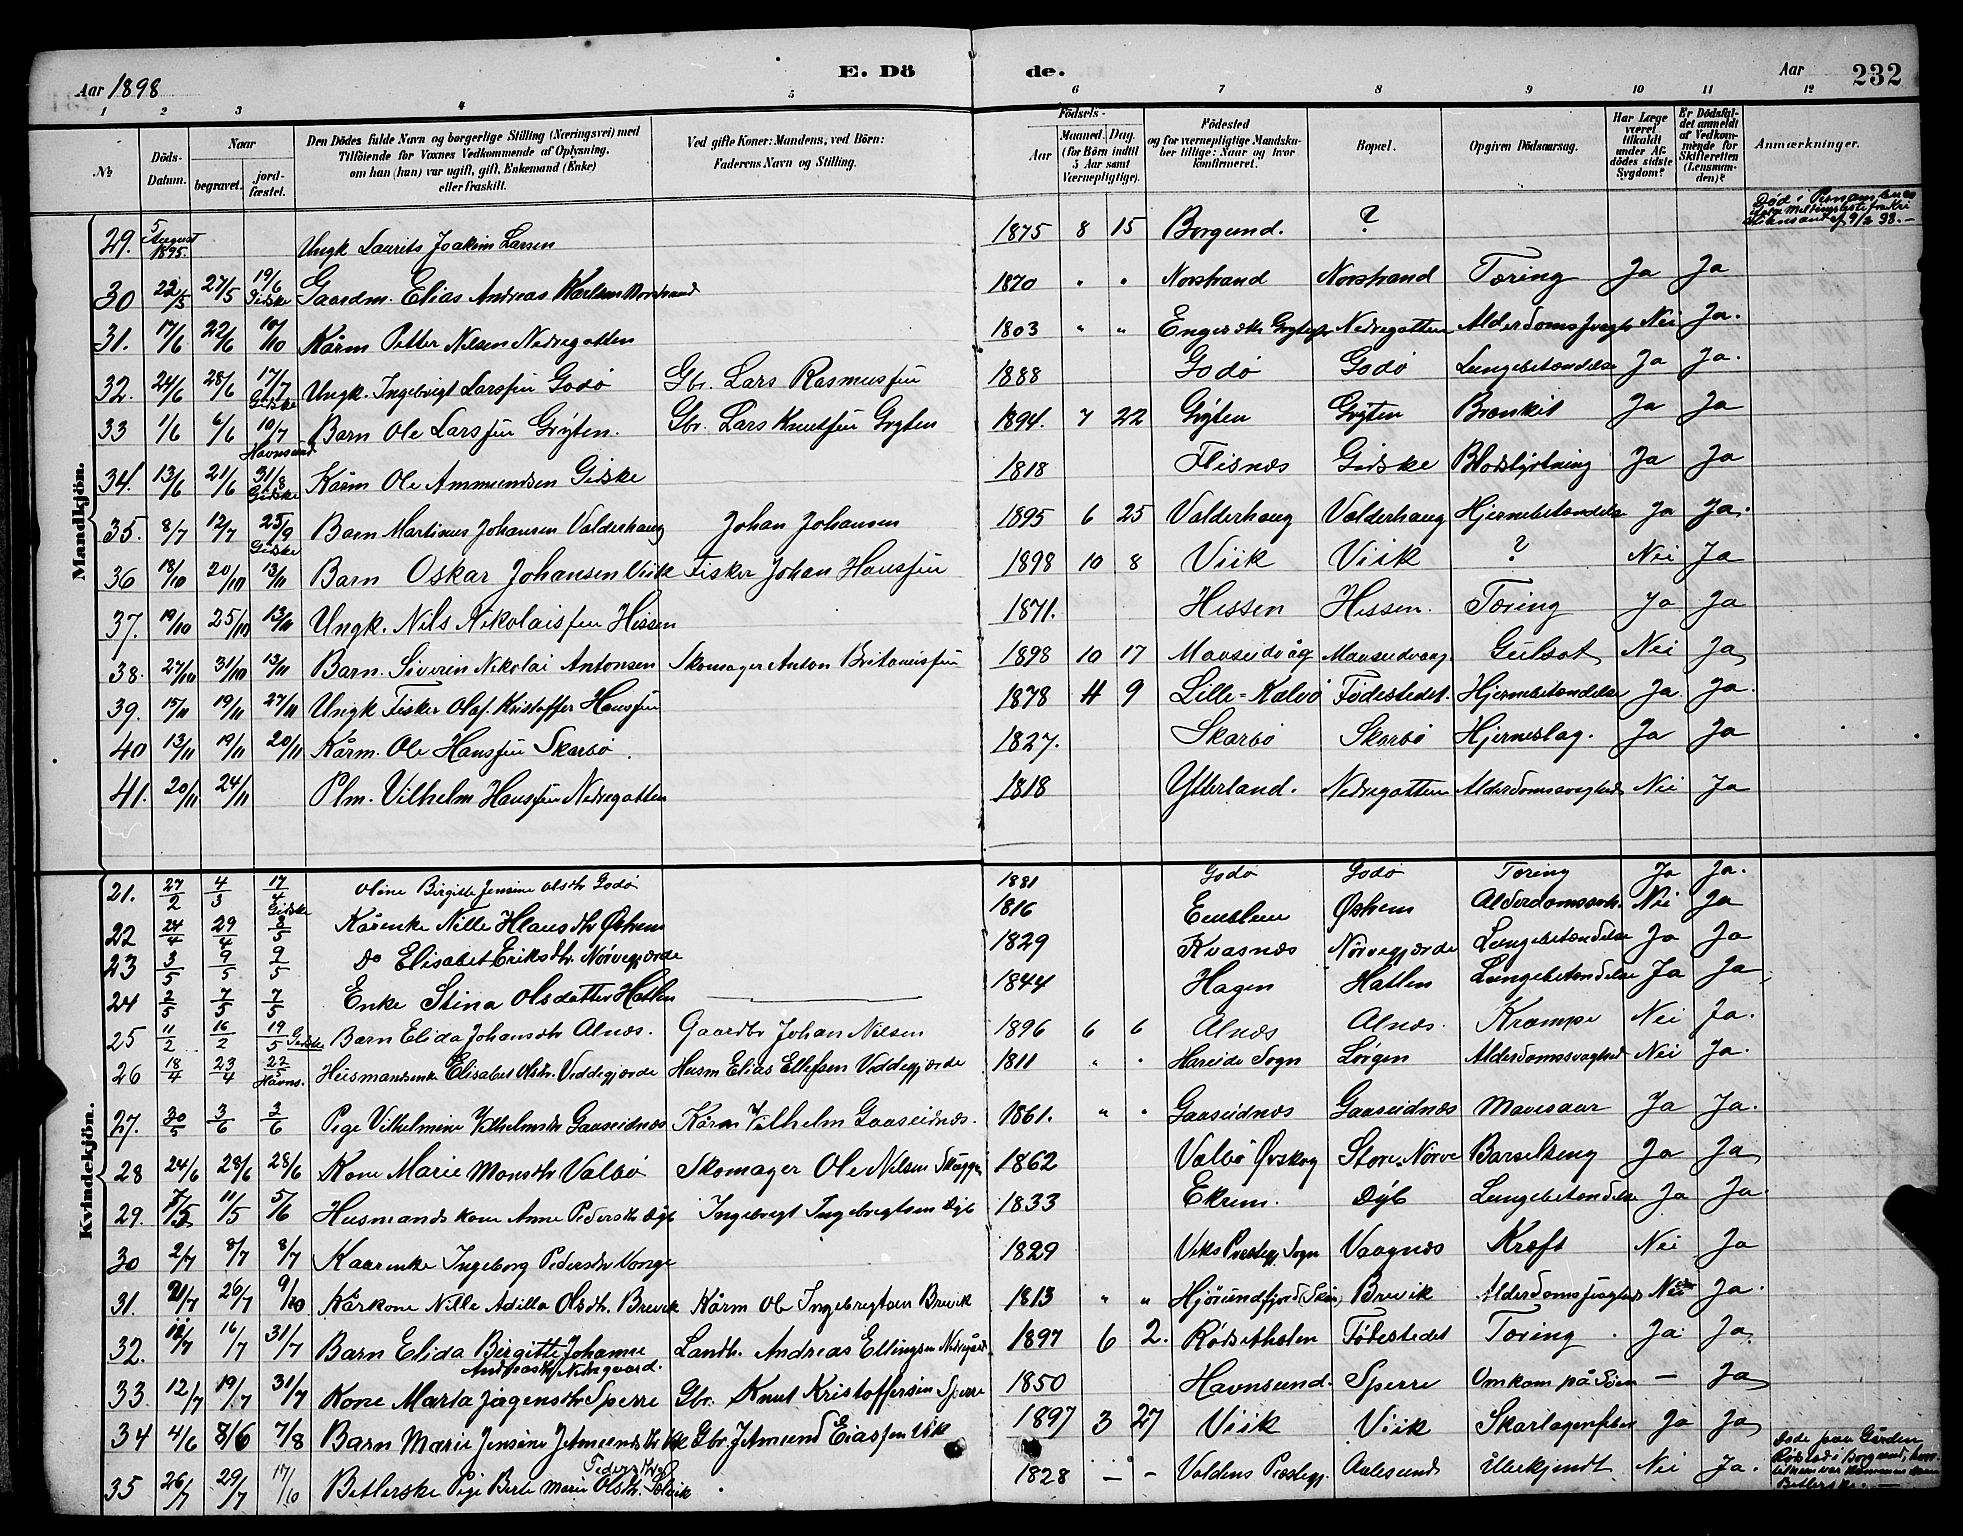 Aar 1898
E. Dö
de.
Aar
232
1 2 3 4 5 6 7 8 9 10 11 12
№
Döds-Datum.
Naar
begravet.
jordfæstet.
Den Dödes fulde Navn og borgerlige Stilling (Næringsvei) med
Tilföiende for Voxnes Vedkommende af Oplysning,
om han (hun) var ugift, gift, Enkemand (Enke)
eller fraskilt.
Ved gifte Koner: Mandens, ved Börn:
Faderens Navn og Stilling.
Födsels-
Aar
Maaned. Dag.
(for Börn indtil
5 Aar samt
Værnepligtige).
Födested
og for værnepligtige Mandskaber tillige: Naar og hvor
konfirmeret.
Bopæl.
Opgiven Dödsaarsag.
Har Læge
været
tilkaldt
under Afdödes sidste
Sygdom?
Er Dödsfaldet anmeldt
af Vedkommende for
Skifteretten
(Lensmanden)?
Anmærkninger.
Mandkjön.
29. 5 August 1895. Ungk Laurits Joakim Larsen 1875 8 15 Borgund. ?
30 22/5 27/5 19/6 Gidske Gaardm. Elias Andreas Karlsen Norstrand 1870 " " Norstrand Norstrand Tæring Ja Ja
31. 17/6 22/6 10/10 Kårm Petter Nilsen Nedregotten 1803 " " Nedregotten Nei Ja.
32. 24/6 28/6 17/7 Gidske Ungk. Ingebrigt Larssen Godö Gbr. Lars Rasmussen 1888 Godö Godö Lungebetændelse Ja Ja.
33 1/6 6/6 10/7 Havnsund Barn Ole Larssen Gryten. Gbr. Lars Knutsen Gryten 1894. 7 22 Gryten Gryten Bronkit Ja Ja
34. 13/6 21/6 31/8 Gidske Kårm Ole Ammundsen Gidske 1818 Flisnæs Gidske Blodstyrtning Ja Ja
35. 8/7 12/7 25/9 Gidske Barn Martinus Johansen Valderhaug Johan Johansen 1895 6 25 Valderhaug Valderhaug Hjernebetændelse Ja Ja.
36 18/10 20/10 13/11 Barn Oskar Johansen Viik Fisker Johan Hanssen 1898 10 8 Viik Viik ? Nei Ja
37. 19/10 25/10 13/11 Ungk. Nils Nikolaissen Hessen 1871. Hessen Hessen. Tæring Ja Ja
38. 27/10 31/10 13/11 Barn. Siverin Nikolai Antonsen Skomager Anton 1898 10 17 Mauseidvåg Mauseidvaag. Gulsot Nei Ja
39. 15/11 19/11 27/11 Ungk Fisker Olaf Kristoffer Hanssen 1878 4 9 Lille-Kalvö Födestedet. Hjernebetændelse Ja Ja.
40 13/11 19/11 20/11 Kårm. Ole Hanssen Skarbö. 1827. Skarbö Skarbö Hjerneslag. Ja Ja
41. 20/11 24/11 Plm. Vilhelm Hanssen Nedregotten 1818 Ytterland. Nedregotten Alderdomssvaghed Nei Ja
Kvindekjön.
21. 27/2 4/3 17/4 Gidske Oline Birgitte Jensine Olsdtr Godö 1881 Godö Godö Tæring Ja Ja.
22 24/4 29/4 8/5 Kårenke Nille Hansdtr 1816 Alderdomssvk. Nei Ja
23 3/5 9/5 9/5 Do Elisabet Eriksdtr. Nörvegjærde 1829 Kvasnæs Nörvegjærde Lungebetændelse Ja Ja
24 2/5 7/5 7/5 Enke Stina Olsdatter Hatlen 1844 Hagen Hatlen Lungebetændelse Ja Ja
25 11/2 16/2 19/5 Gidske Barn Elida Johansdtr Alnæs. Gaardbr Johan Nilsen 1896 6 6 Alnæs Alnæs. Krampe Nei Ja.
26 18/4 23/4 22/5 Havns. Husmandsenke Elisabet Olsdtr. Veddegjerde Husm Elias Ellefsen Veddegjerde 1811 " " Hareide Sogn Alderdomssvaghed Nei Ja.
27. 30/5 3/6 3/6 Pige Vilhelmine Vilhelmsdtr Gaaseidnæs Kårm Vilhelm Gaaseidnæs. 1861. " " Gaaseidnæs Gaaseidnæs Mavesaar Ja Ja.
28 24/6 28/6 28/6 Kone Marie Monsdtr Valbö Skomager Ole Nilsen 1862 Valbö Örskog Store Nörve Barselseng Ja Ja
29. 7/5 11/5 5/6 Husmandskone Anne Pedersdtr Dyb Ingebrigt Ingebrigtsen Dyb 1833 Ekrem. Dyb Lungebetændelse Ja Ja.
30 2/7 8/7 8/7 Kaarenke Ingeborg Pedersdtr 1829 Vaagnæs Kræft Nei Ja
31. 21/7 26/7 9/10 Kårkone Nille Adilla Olsdtr. Brevik Kårm Ole Ingebrigtsen Brevik 1813 " " Hjörundfjord Brevik Alderdomssvaghed Nei Ja.
32. 12/7 16/7 31/7 Barn Elida Birgitte Johanne Andreasdtr Nedregaard. Landh. Andreas Ellingsen Nedregård 1897 6 2. Rödsetholen Födestedet Tæring Ja Ja.
33 12/7 19/7 31/7 Kone Marta Jörgensdtr Sperre Gbr. Knut Kristoffersen Sperre 1850 Havnsund. Sperre Omkom på Söen — Ja
34 4/6 8/6 7/8 Barn Marie Jensine Vik Gbr. Vik 1897 3 27 Viik Viik Skarlagensfeber Ja Ja
35 26/7 29/7 17/10 Betlerske Pige Berte Marie Olsdtr. 1828 — — Voldens Præstegj. Aalesund Ubekjendt Nei Ja.
Döde paa Gården
Betlerske.—